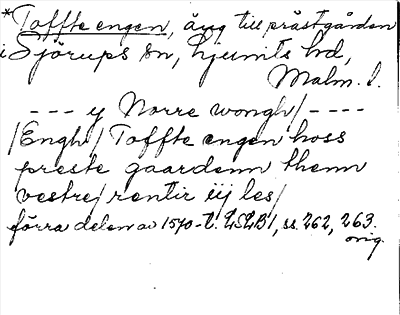 *Toffte engen, äng till prästgården
i Sjörups sn, Ljunits hd,
Malm. l.
--- y Norre wongh/----
/Engh/ Toffte engen hoss
preste gaardenn thenn
vestre/rentir iij les/
förra delen av 1570-t. LSLB1, ss. 262, 263.
orig.